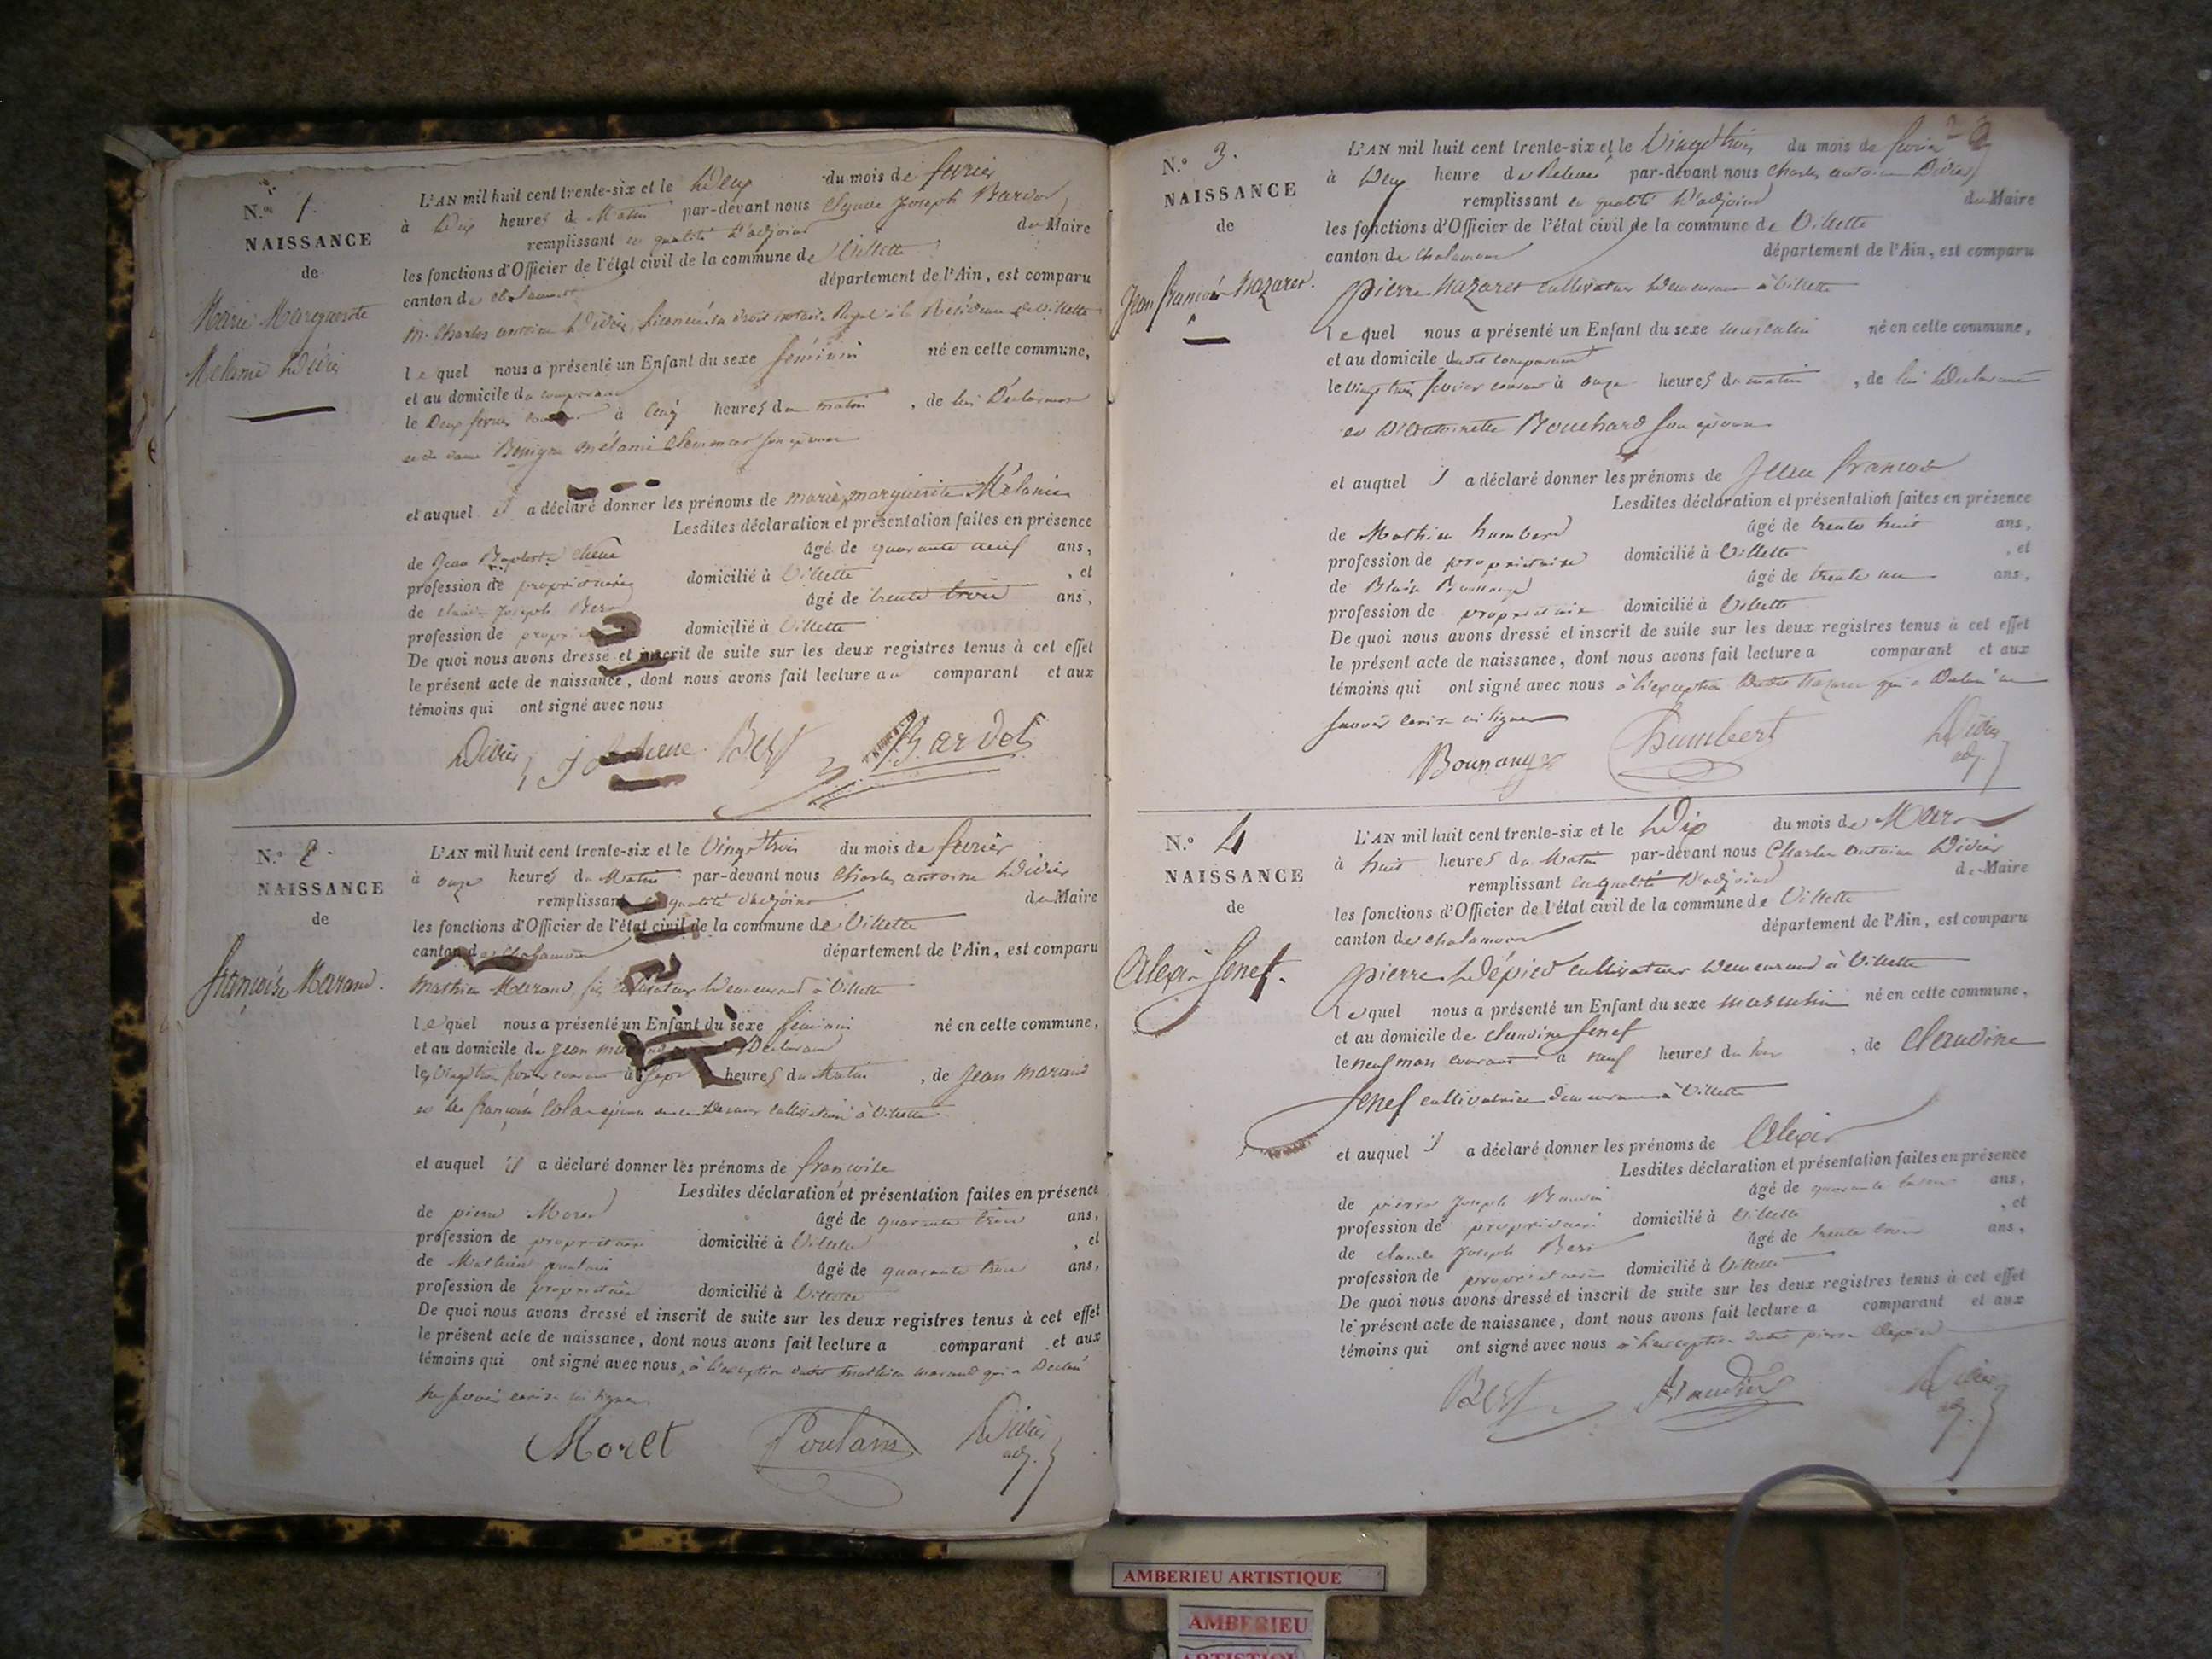 N.° 1.
NAISSANCE
de
Marie Marguerite
Mélanie Didier
L'AN mil huit cent trente-six et le Deux du mois de février
à Deux heures du Matin par-devant nous Joseph Bardot
remplissant en qualité d'adjoint du Maire
les fonctions d'Officier de l'état civil de la commune de Villette
canton de chalamont département de l'Ain, est comparu
Mr. Charles antoine Didier, Licencié en droit notaire Royal à la Résidence de Villette
lequel nous a présenté un Enfant du sexe féminin né en cette commune,
et au domicile du comparant
le Deux février courant à heures du matin, de lui Déclarant
et de dame Benigne mélanie son épouse
et auquel il a déclaré donner les prénoms de marie, marguerite Mélanie
Lesdites déclaration et présentation faites en présence
de Jean Baptiste chêne âgé de quarante neuf ans,
profession de propriétaire domicilié à Villette, et
de claude Joseph Bert âgé de trente trois ans,
profession de domicilié à Villette
De quoi nous avons dressé et inscrit de suite sur les deux registres tenus à cet effet
le présent acte de naissance, dont nous avons fait lecture au comparant et aux
témoins qui ont signé avec nous
Didier Bert Bardot
N.° 2.
NAISSANCE
de
françoise Marand.
L'AN mil huit cent trente-six et le Vingt trois du mois de février
à onze heures du Matin par-devant nous Charles antoine Didier
remplissant en qualité d'adjoint du Maire
les fonctions d'Officier de l'état civil de la commune de Villette
canton de chalamont département de l'Ain, est comparu
mathieu Marand, fils cultivateur Demeurant à Villette
lequel nous a présenté un Enfant du sexe féminin né en cette commune,
et au domicile de Jean
le Vingt trois février courant à Sept heures du Matin, de Jean marand
et de françoise cultivateurs à Villette
et auquel il a déclaré donner les prénoms de francoise
Lesdites déclaration et présentation faites en présence
de pierre Moret âgé de quarante trois ans,
profession de propriétaire domicilié à Villette, et
de Mathieu poulain âgé de quarante trois ans,
profession de propriétaire domicilié à Villette
De quoi nous avons dressé et inscrit de suite sur les deux registres tenus à cet effet
le présent acte de naissance, dont nous avons fait lecture a comparant et aux
témoins qui ont signé avec nous, à l'exception dudit mathieu marand qui a Déclaré
ne savoir écrire ni signer
Moret Poulain Didier
adj.
N.° 3.
NAISSANCE
de
Jean françois Nazaret.
L'AN mil huit cent trente-six et le Vingt trois du mois de février
à Deux heure de Relevé par-devant nous Charles antoine Didier
remplissant en qualité d'adjoint du Maire
les fonctions d'Officier de l'état civil de la commune de Villette
canton de chalamont département de l'Ain, est comparu
pierre Nazaret cultivateur Demeurant à Villette
lequel nous a présenté un Enfant du sexe masculin né en cette commune,
et au domicile dudit comparant
le vingt trois février courant à onze heures du matin, de lui Déclarant
et D'antoinette Bouchard son épouse
et auquel il a déclaré donner les prénoms de Jean francois
Lesdites déclaration et présentation faites en présence
de Mathieu humbert âgé de trente huit ans,
profession de propriétaire domicilié à Villette, et
de Blaise âgé de trente un ans,
profession de propriétaire domicilié à Villette
De quoi nous avons dressé et inscrit de suite sur les deux registres tenus à cet effet
le présent acte de naissance, dont nous avons fait lecture a comparant et aux
témoins qui ont signé avec nous à l'exception Dudit Nazaret qui a Déclaré ne
savoir écrire ni signer
humbert Didier
adj.
N.° 4
NAISSANCE
de
Alexis Jenet.
L'AN mil huit cent trente-six et le Dix du mois de Mars
à huit heures du Matin par-devant nous Charles antoine Didier
remplissant en qualité d'adjoint du Maire
les fonctions d'Officier de l'état civil de la commune de Villette
canton de chalamont département de l'Ain, est comparu
pierre Dépied cultivateur Demeurant à Villette
lequel nous a présenté un Enfant du sexe masculin né en cette commune,
et au domicile de claudine Jenet
le neuf mars courant à neuf heures du soir, de Claudine
Jenet cultivatrice demeurant à Villette
et auquel il a déclaré donner les prénoms de Alexis
Lesdites déclaration et présentation faites en présence
de pierre Joseph Baudin âgé de quarante ans,
profession de propriétaire domicilié à Villette, et
de claude Joseph Bert âgé de trente trois ans,
profession de propriétaire domicilié à Villette
De quoi nous avons dressé et inscrit de suite sur les deux registres tenus à cet effet
le présent acte de naissance, dont nous avons fait lecture a comparant et aux
témoins qui ont signé avec nous à l'exception dudit pierre Depied
Bert Baudin Didier
adj.
AMBERIEU ARTISTIQUE
AMBERIEU
ARTISTIQUE